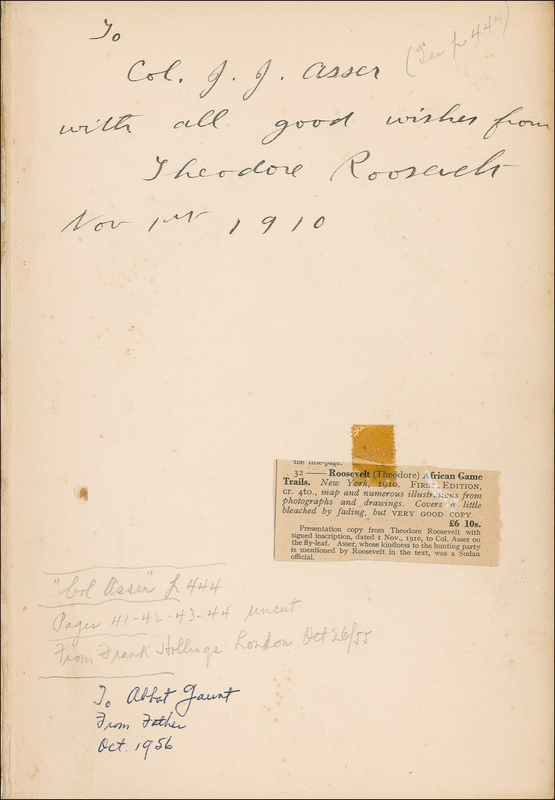 To
Col. J. J. Asser
(See p 444)
with all good wishes from
Theodore Roosevelt
Nov 1st 1910
the title-page.
32 —— Roosevelt (Theodore) African Game
Trails. New York, 1910. First Edition,
cr. 4to., map and numerous illustrations from
photographs and drawings. Covers a little
bleached by fading, but VERY GOOD COPY
£6 10s.
Presentation copy from Theodore Roosevelt with
signed inscription, dated 1 Nov., 1910, to Col. Asser on
the fly-leaf. Asser, whose kindness to the hunting party
is mentioned by Roosevelt in the text, was a Sudan
official.
"Col Asser" p 444
Pages 41-42-43-44 uncut
From Frank Hollings London Oct 26/55
To Abbot Gaunt
From Father
Oct. 1956